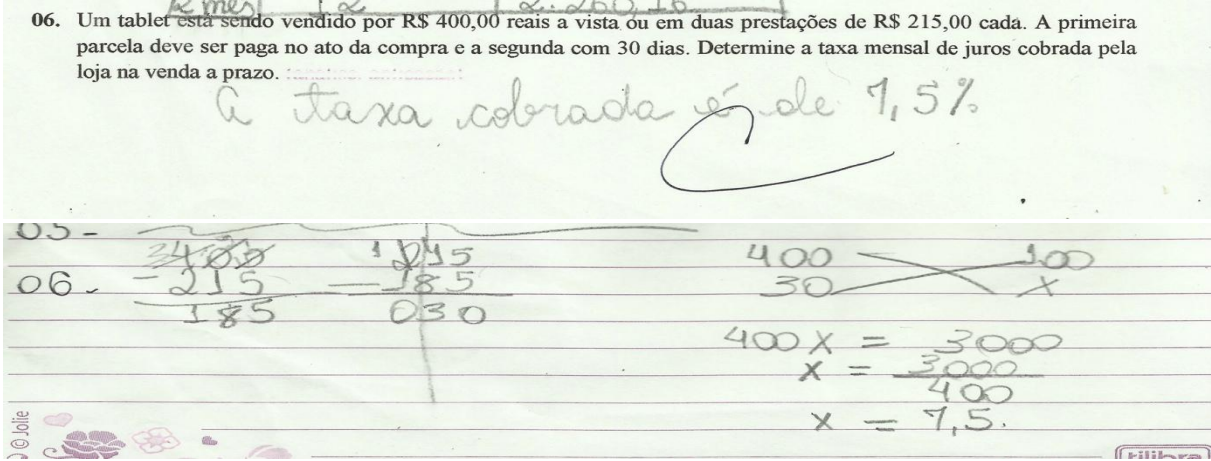 2 mes 2 2.260,16
06. Um tablet está sendo vendido por R$ 400,00 reais a vista ou em duas prestações de R$ 215,00 cada. A primeira
parcela deve ser paga no ato da compra e a segunda com 30 dias. Determine a taxa mensal de juros cobrada pela
loja na venda a prazo.
A taxa cobrada é de 7,5%
05-
400 215 400 100
06. - 215 - 185 30 X
185 030
400 X = 3000
X = 3000
400
X = 7,5.
© Jolie
tilibra